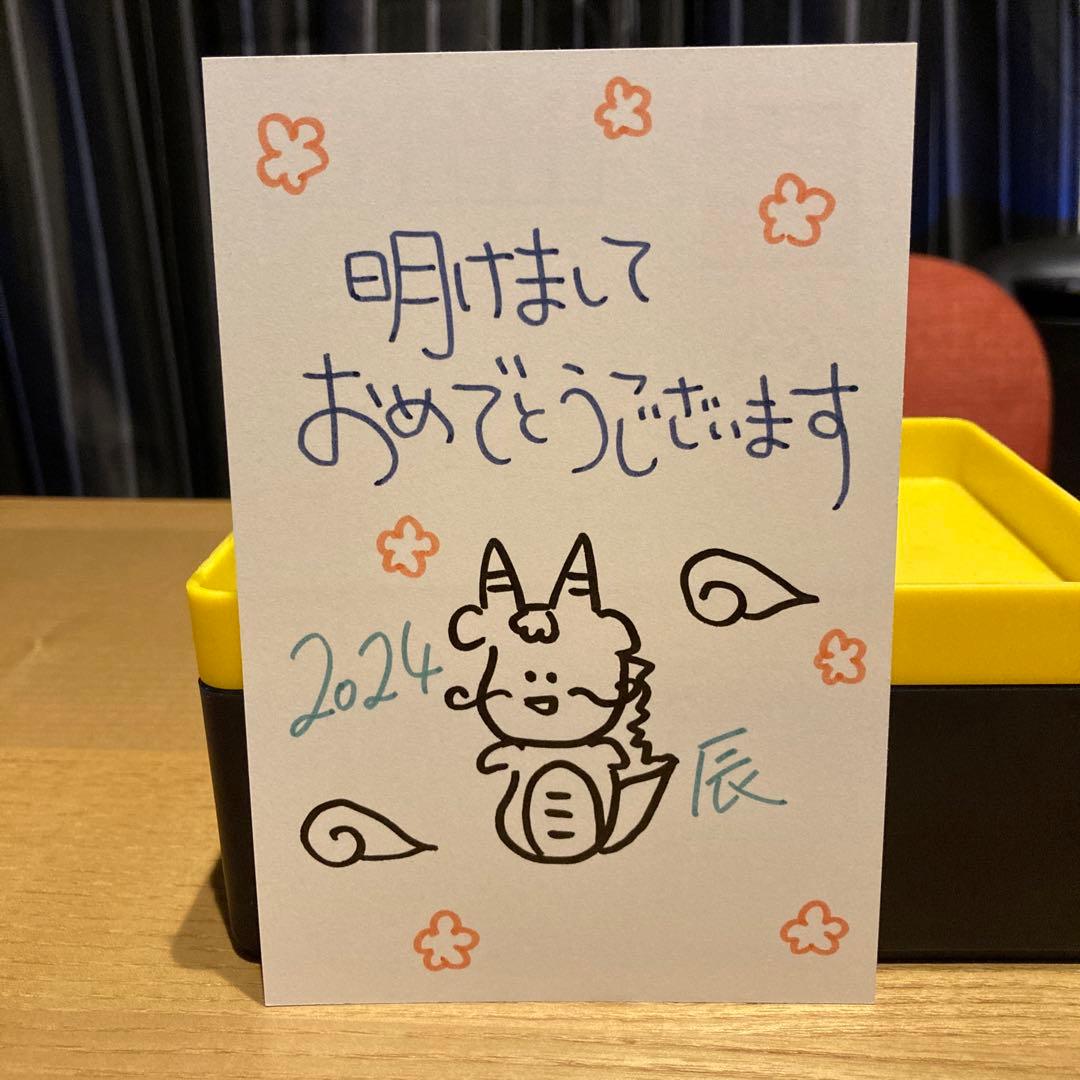 明けまして
おめでとうございます
2024
辰